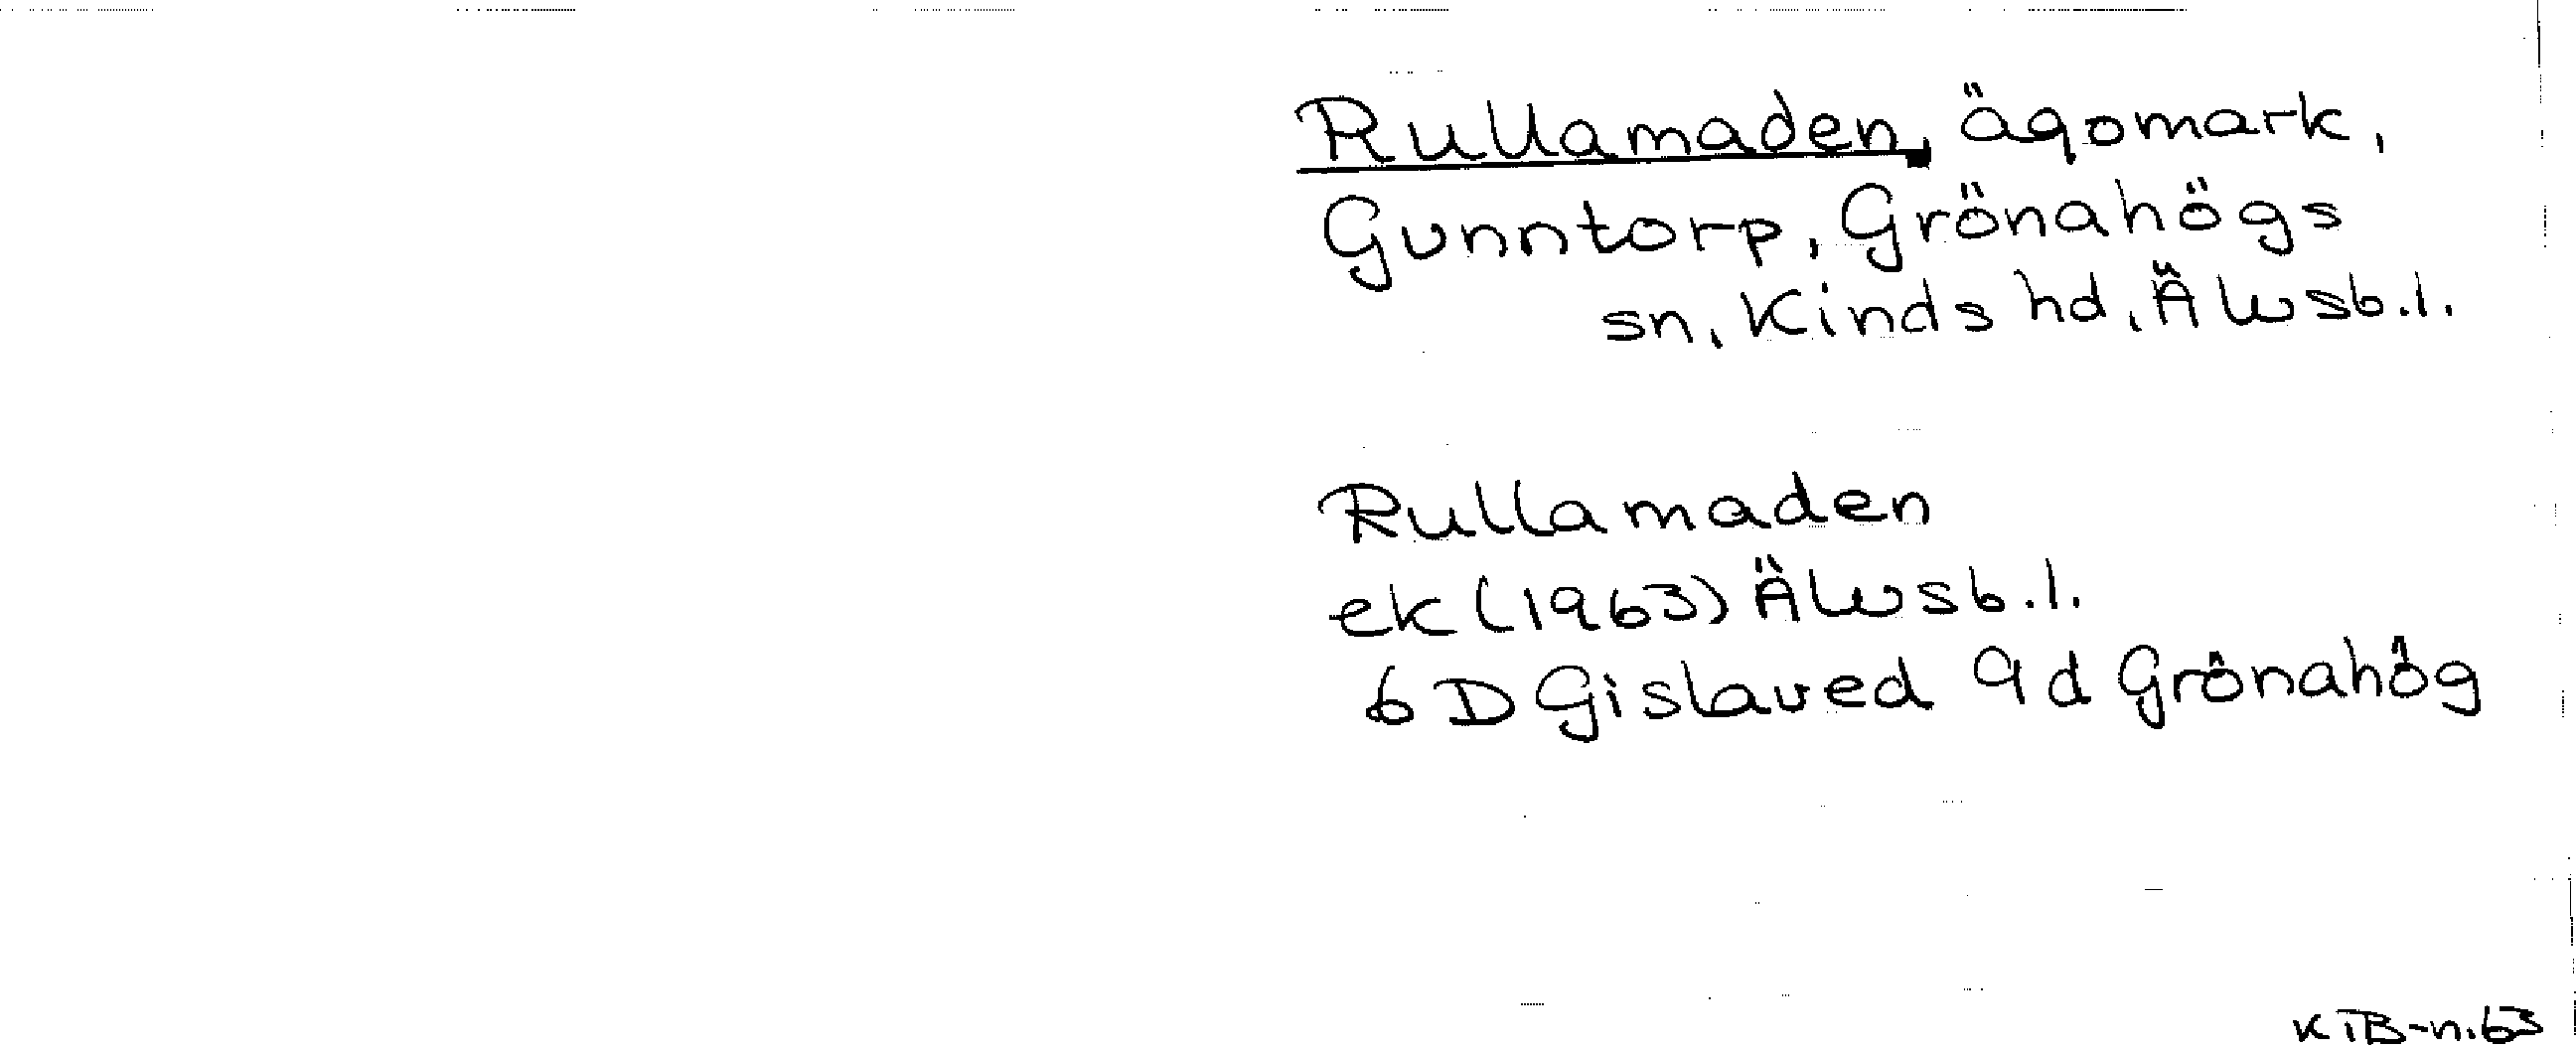 Rullamaden, ägomark,
Gunntorp, Grönahögs
sn, Kinds hd, Älvsb.l.
Rullamaden
ek (1963) Älvsb.l.
6D Gislaved 9d Grönahög
KiB-n.63